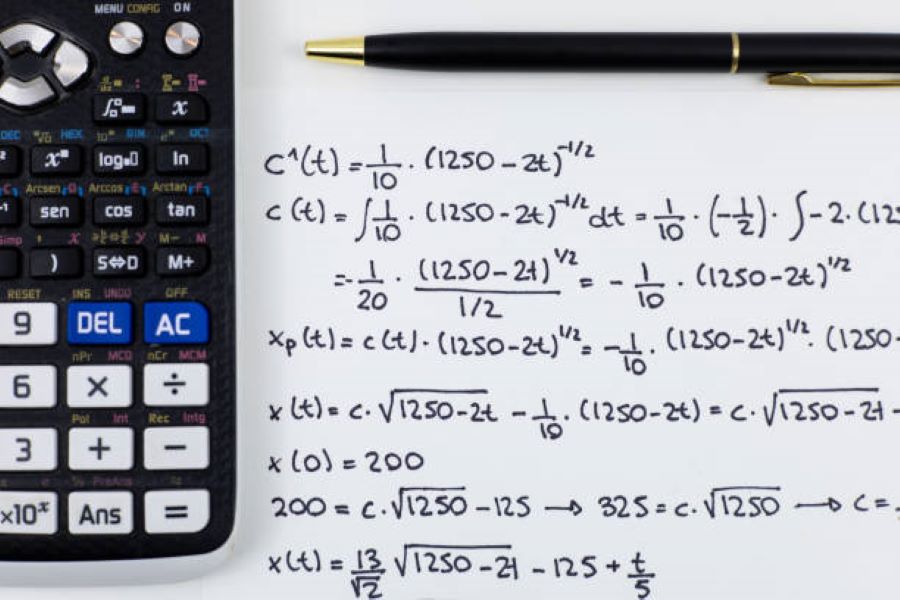 MENU CONFIG ON
x
DEC HEX 10ˣ BIN eˣ OCT
x■ log■□ ln
Arcsen D Arccos E Arctan F
sen cos tan
M− M
) S⇔D M+
RESET INS UNDO OFF
9 DEL AC
nPr MCD nCr MCM
6 × ÷
Pol Int Rec Intg
3 + −
PreAns
×10ˣ Ans =
C^(t) = 1/10 · (1250 − 2t)^-1/2
c (t) = ∫ 1/10 · (1250 − 2t)^-1/2 dt = 1/10 · (−1/2) · ∫ −2 · (12
= −1/20 · (1250 − 2t)^1/2 / 1/2 = − 1/10 · (1250 − 2t)^1/2
xp (t) = c (t) · (1250 − 2t)^1/2 = − 1/10 · (1250 − 2t)^1/2 · (1250 −
x (t) = c · √1250 − 2t − 1/10 · (1250 − 2t) = c · √1250 − 2t −
x (0) = 200
200 = c · √1250 − 125 → 325 = c · √1250 → c =
x (t) = 13/√2 √1250 − 2t − 125 + t/5